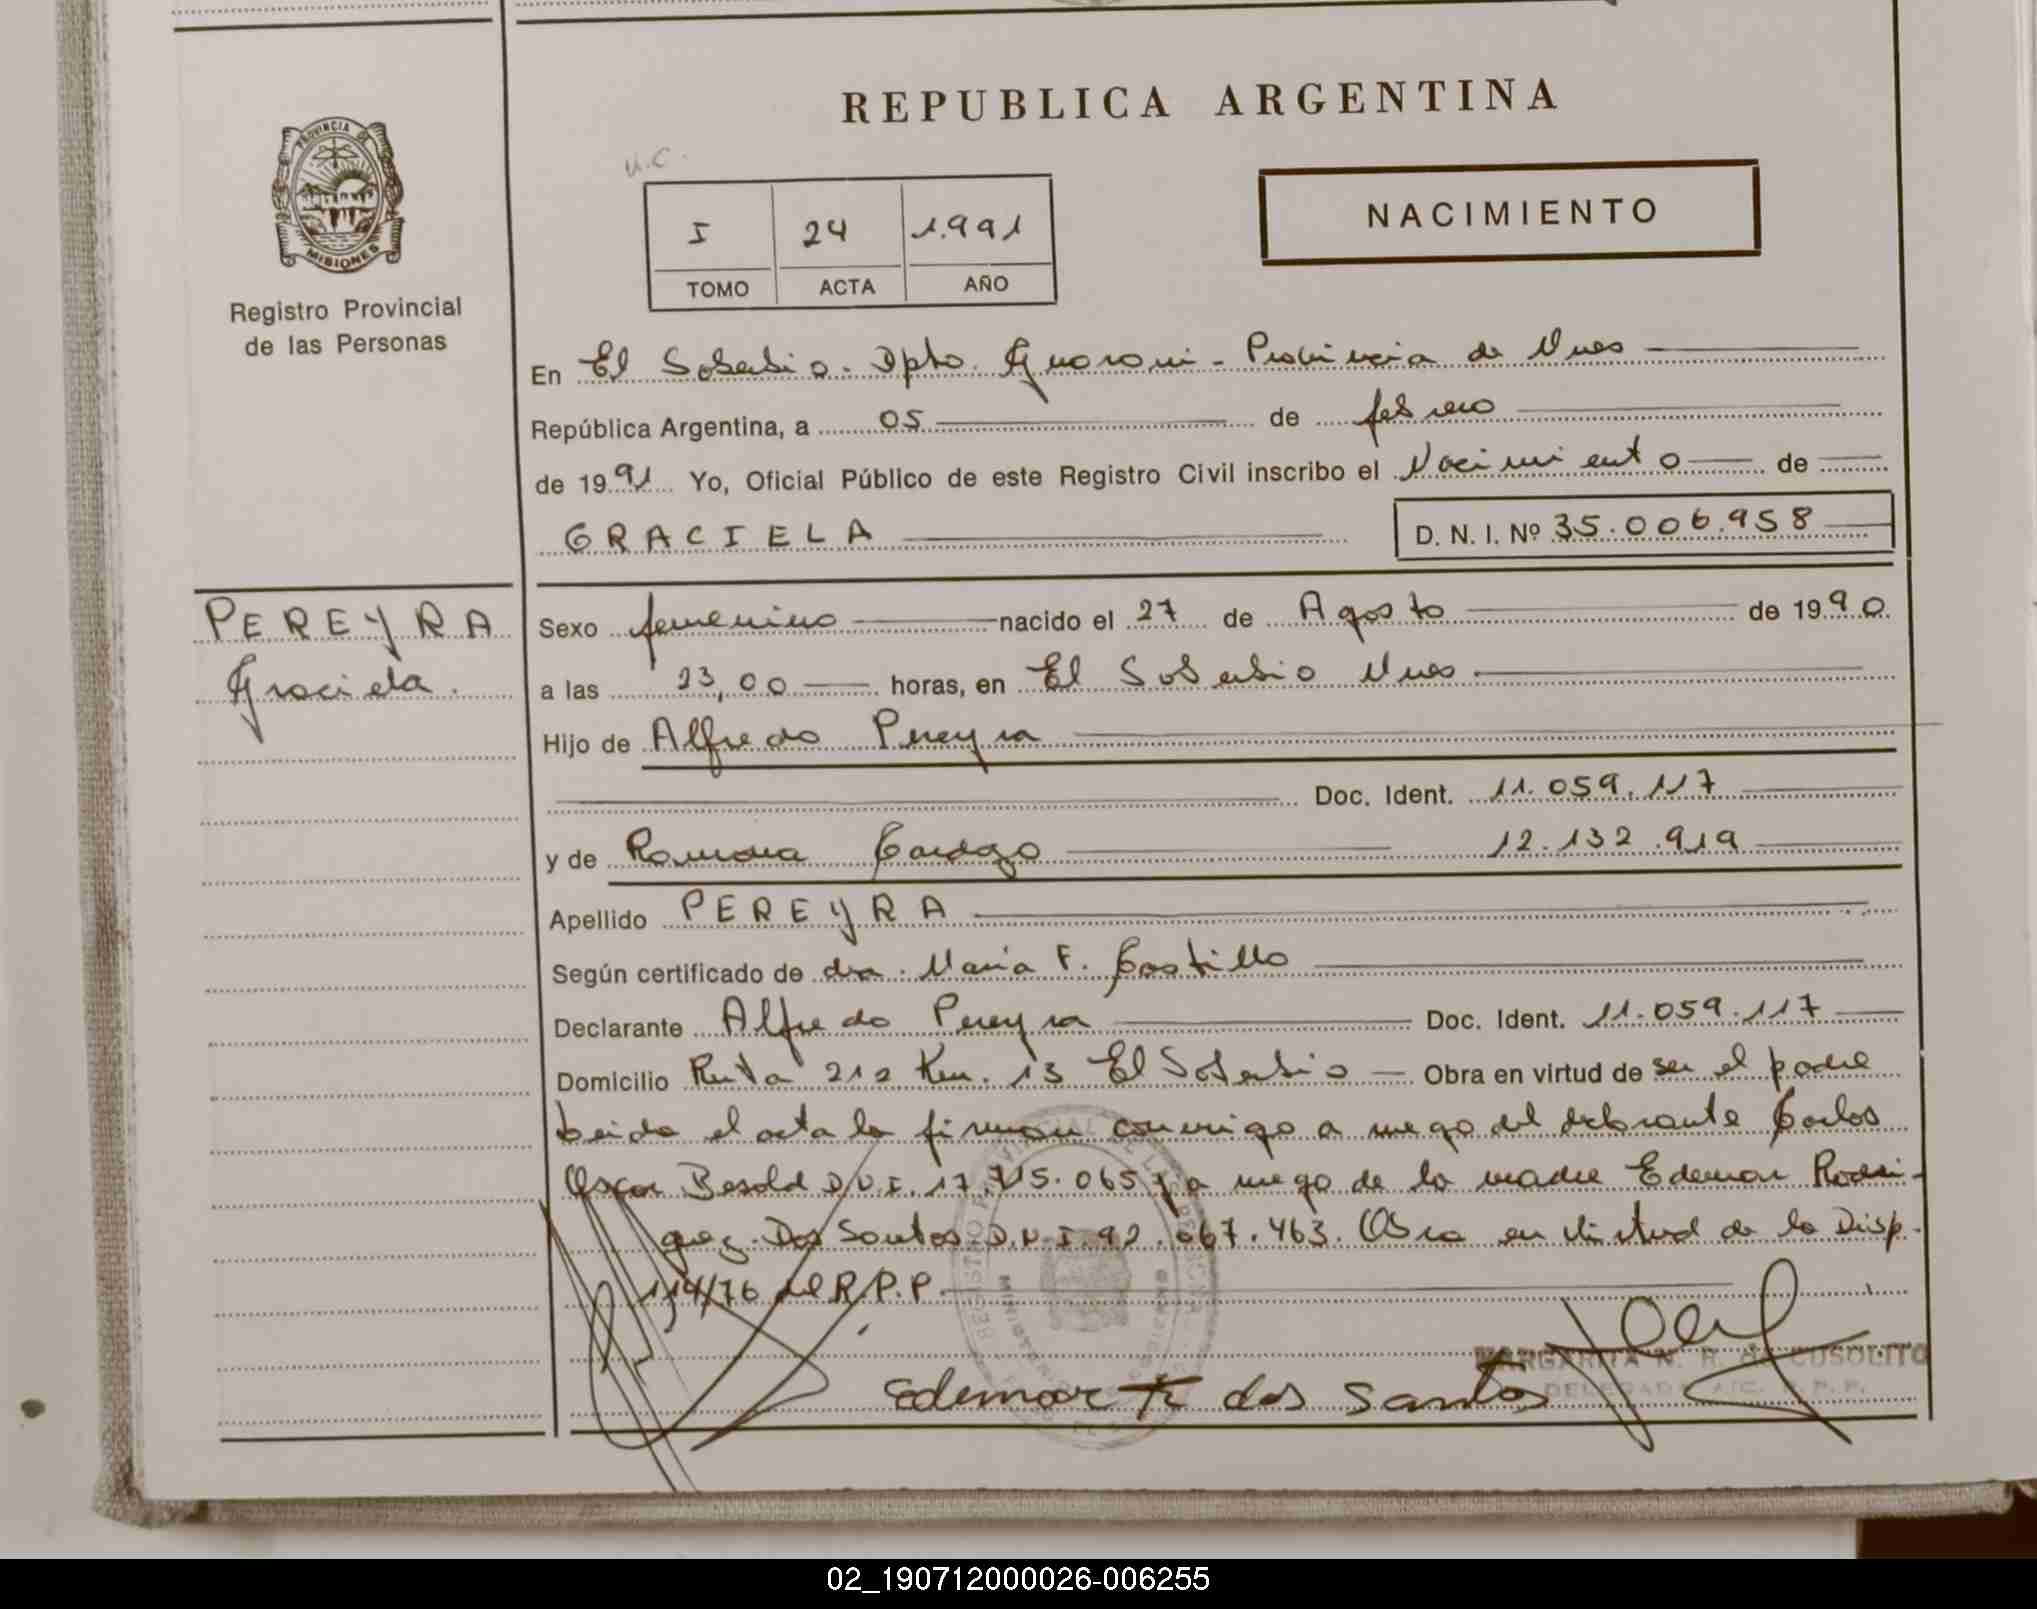 REPUBLICA ARGENTINA
PROVINCIA DE
MISIONES
Registro Provincial
de las Personas
U.C.
I 24 1.991
TOMO ACTA AÑO
NACIMIENTO
En El Soberbio. Dpto. Guarani - Provincia de Mnes
República Argentina, a 05 de febrero
de 1991 Yo, Oficial Público de este Registro Civil inscribo el Nacimiento de
GRACIELA D. N. I. Nº 35.006.958
PEREYRA
Graciela.
Sexo femenino nacido el 27 de Agosto de 1990
a las 23,00 horas, en El Soberbio Mnes
Hijo de Alfredo Pereyra
Doc. Ident. 11.059.117
y de Ramona 12.132.919
Apellido PEREYRA
Según certificado de dra. Maria F. Castillo
Declarante Alfredo Pereyra Doc. Ident. 11.059.117
Domicilio Ruta 212 Km. 13 El Soberbio Obra en virtud de ser el padre
Leida el acta la firman conmigo a ruego del Carlos
Oscar Besold D.N.I. 17.715.065 y a ruego de la madre Edemar Rodri-
guez Dos Santos D.N.I. 92.667.463. Obra en virtud de la Disp.
114/76 del R.P.P.
Edemar dos Santos
MARGARITA N. R. de CUSOLITO
DELEGADA R. P. P.
02_190712000026-006255